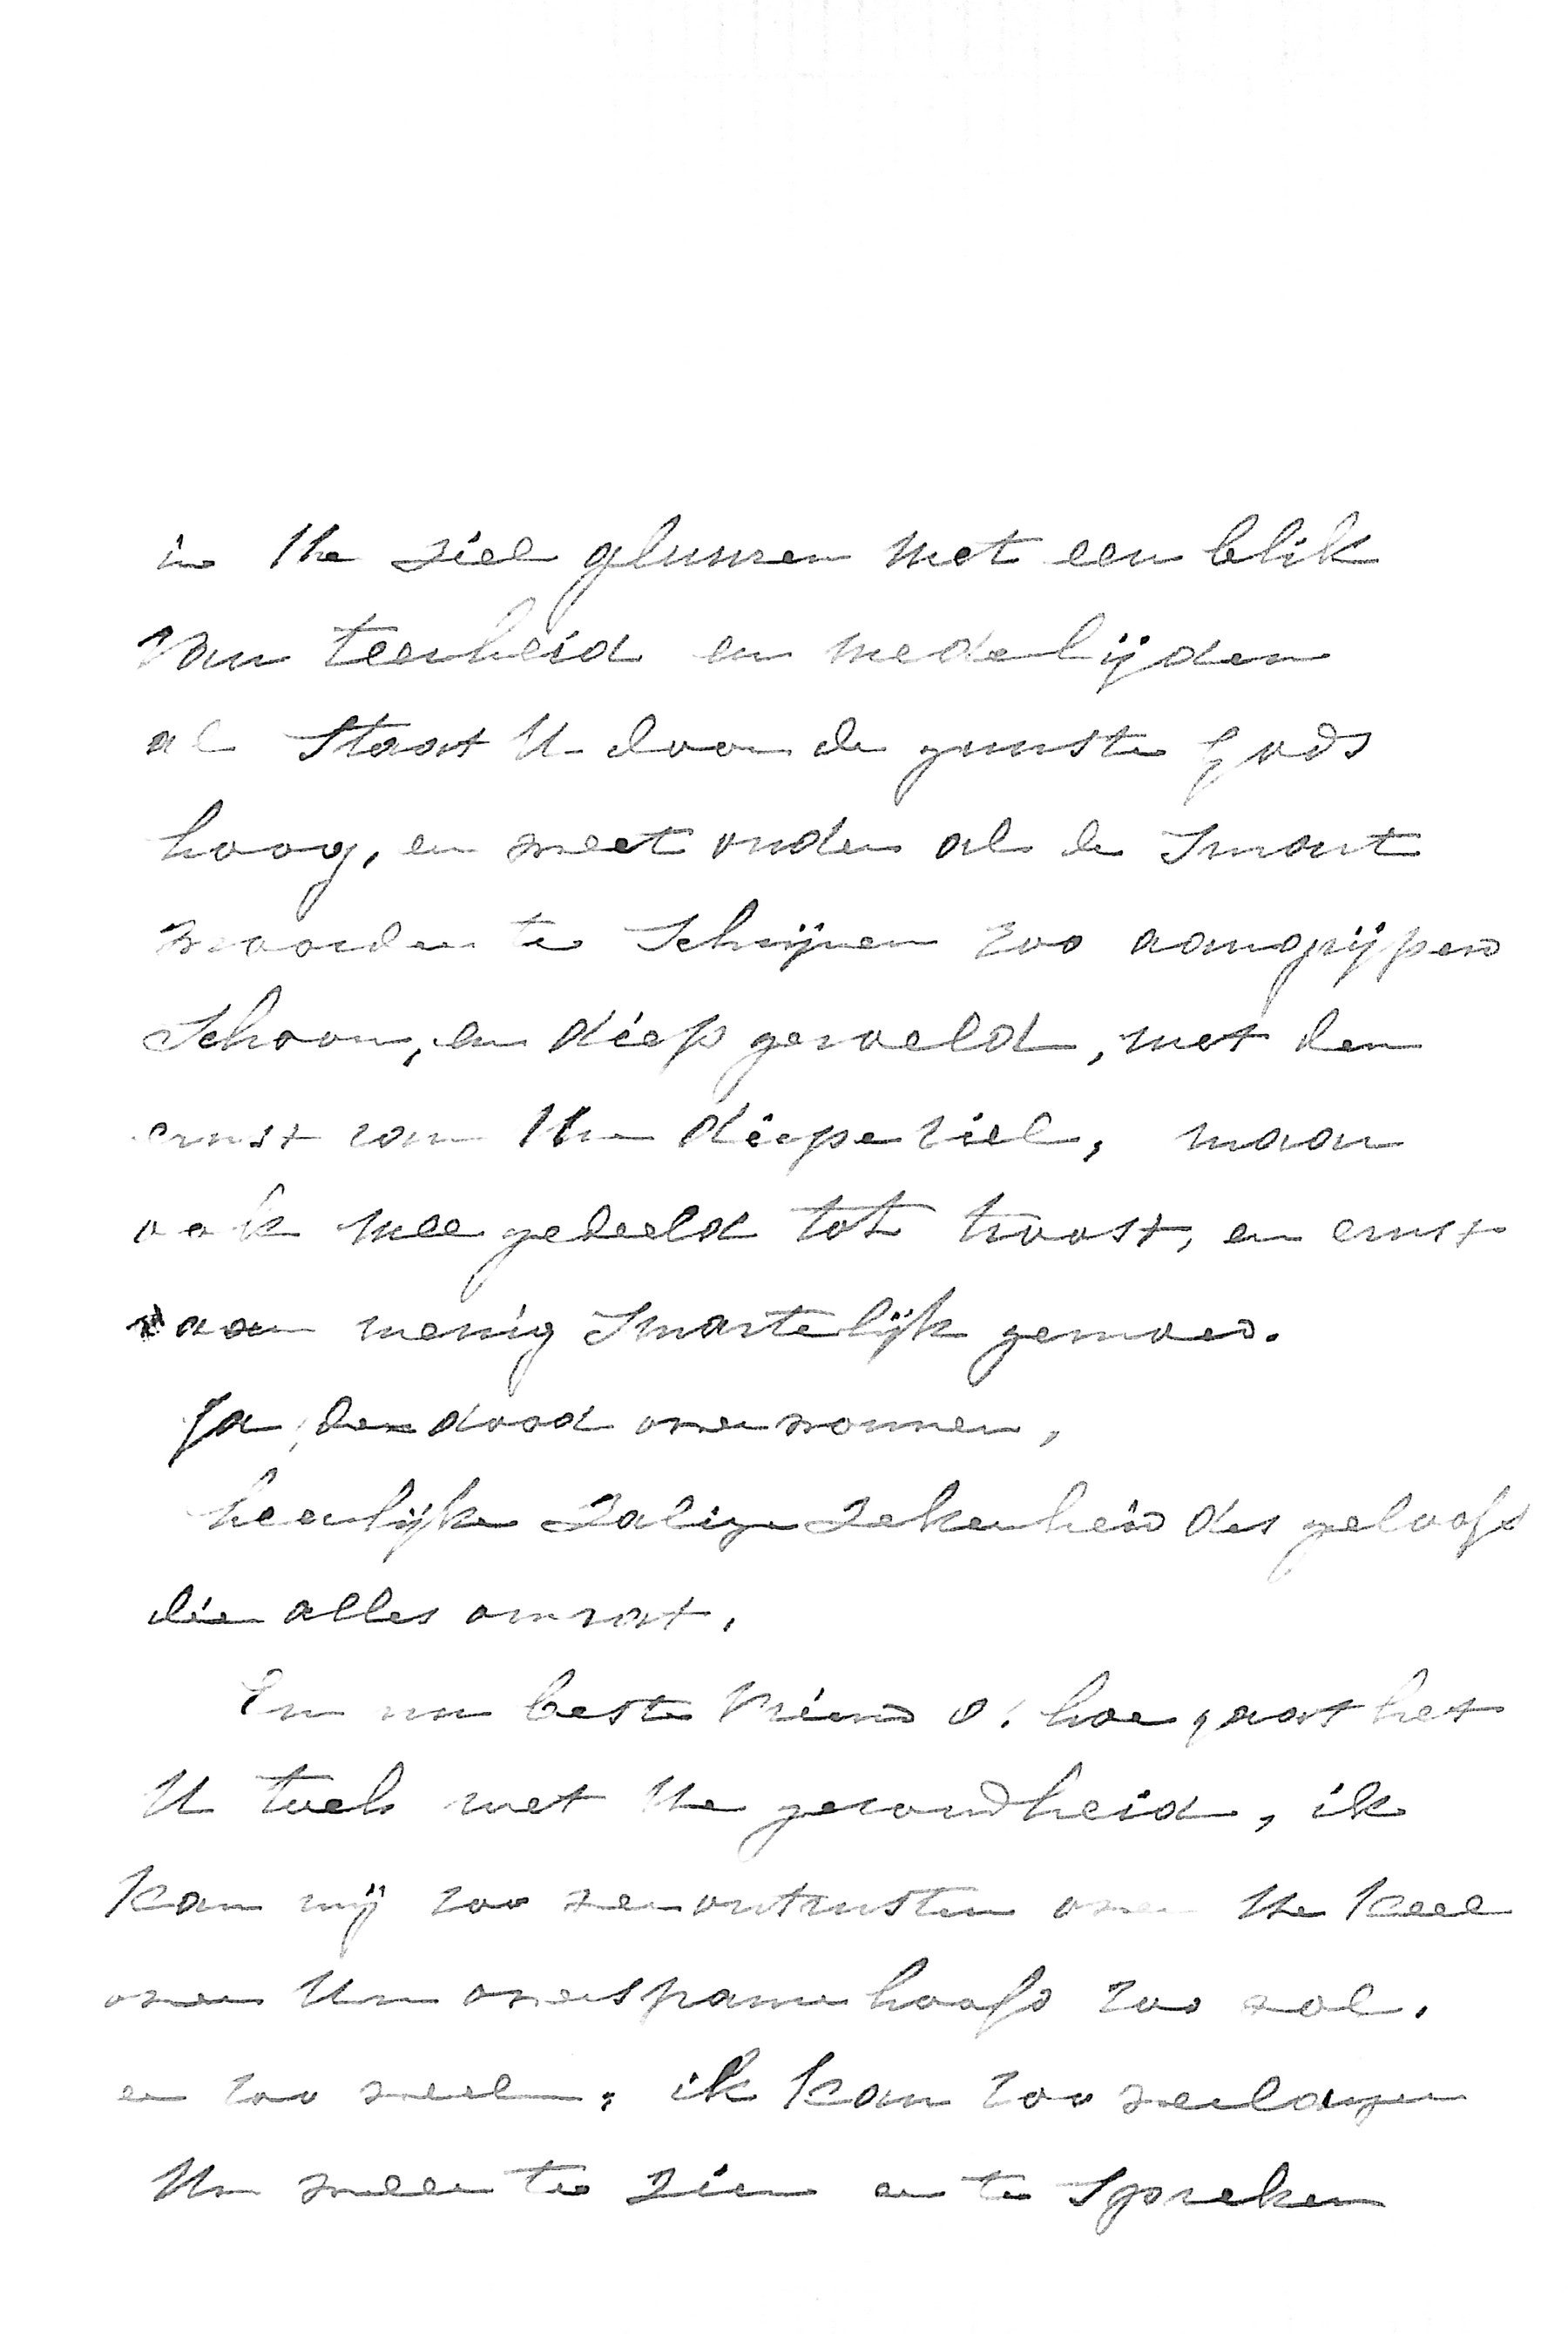 in Uw ziel gluuren met een blik
van teerheid en medelijden
al staat U door de gunste Gods
hoog, en weet onder al de smart
woorden te schrijven zoo aangrijpend
schoon, en diep gevoeld, met den
ernst van Uw diepe ziel, maar
ook mee gedeeld tot troost, en ernst
aan menig smartelijk gemoed.
Ja, den dood overwonnen,
heerlijke zalige zekerheid des geloofs
die alles omvat.
En nu beste Vriend o! hoe gaat het
U toch met Uw gezondheid, ik
kan mij zoo verontrusten over Uw keel
over Uw overspannen hoofd zoo vol.
en zoo veel. ik kan zoo verlangen
Uw weer te zien en te spreken